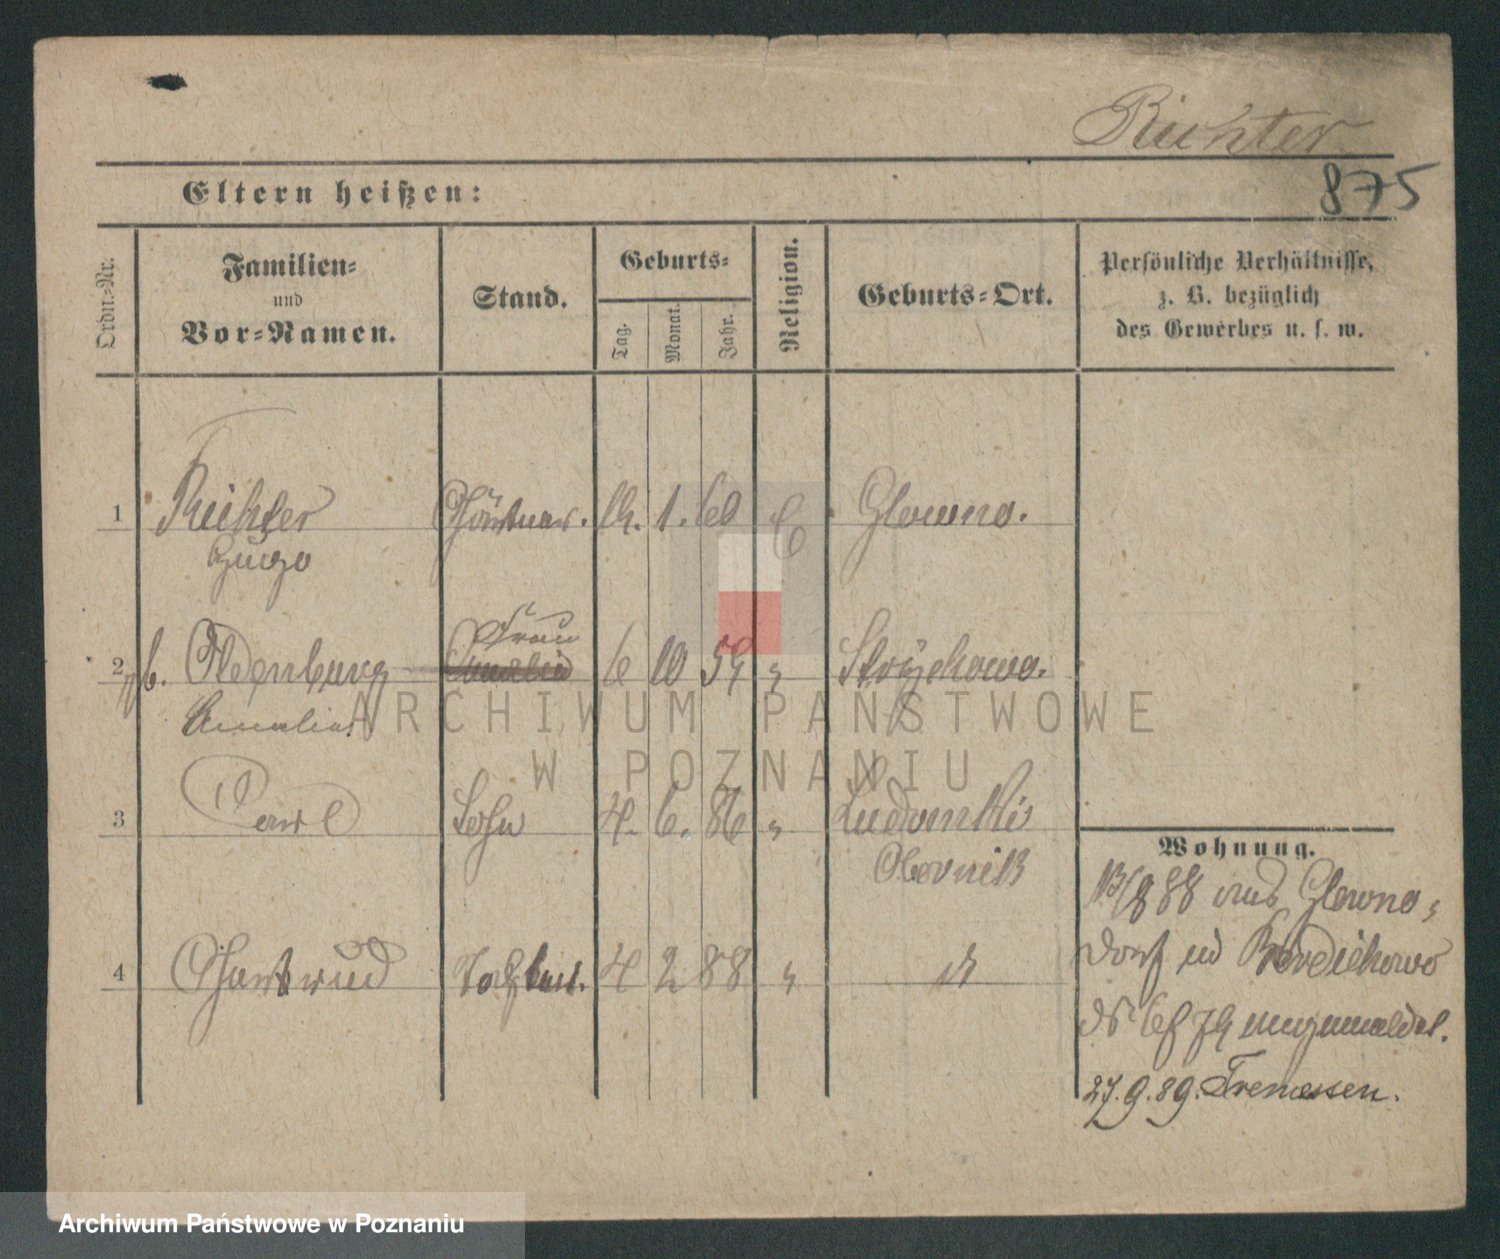 Richter
875
Eltern heißen:
Ordn.-Nr.
Familien-
und
Vor-Namen.
Stand.
Geburts-
Tag.
Monat.
Jahr.
Religion.
Geburts-Ort.
Persönliche Verhältnisse,
z. B. bezüglich
des Gewerbes u. s. w.
1 Richter Gärtner. 1. 60 Glowno.
Hugo
Frau
2 Oldenburg Amalie 6 10 59 " Stryckowo.
Amalie
3 Carl Sohn 4. 6. 86 " Ludomki
Obornik
4 Gertrud Tochter. 4 2 88 "
Wohnung.
13/8 88 aus Glowno-
dorf in Berdichowo
angemeldet.
27.9.89. Tremessen.
ARCHIWUM PAŃSTWOWE
W POZNANIU
Archiwum Państwowe w Poznaniu